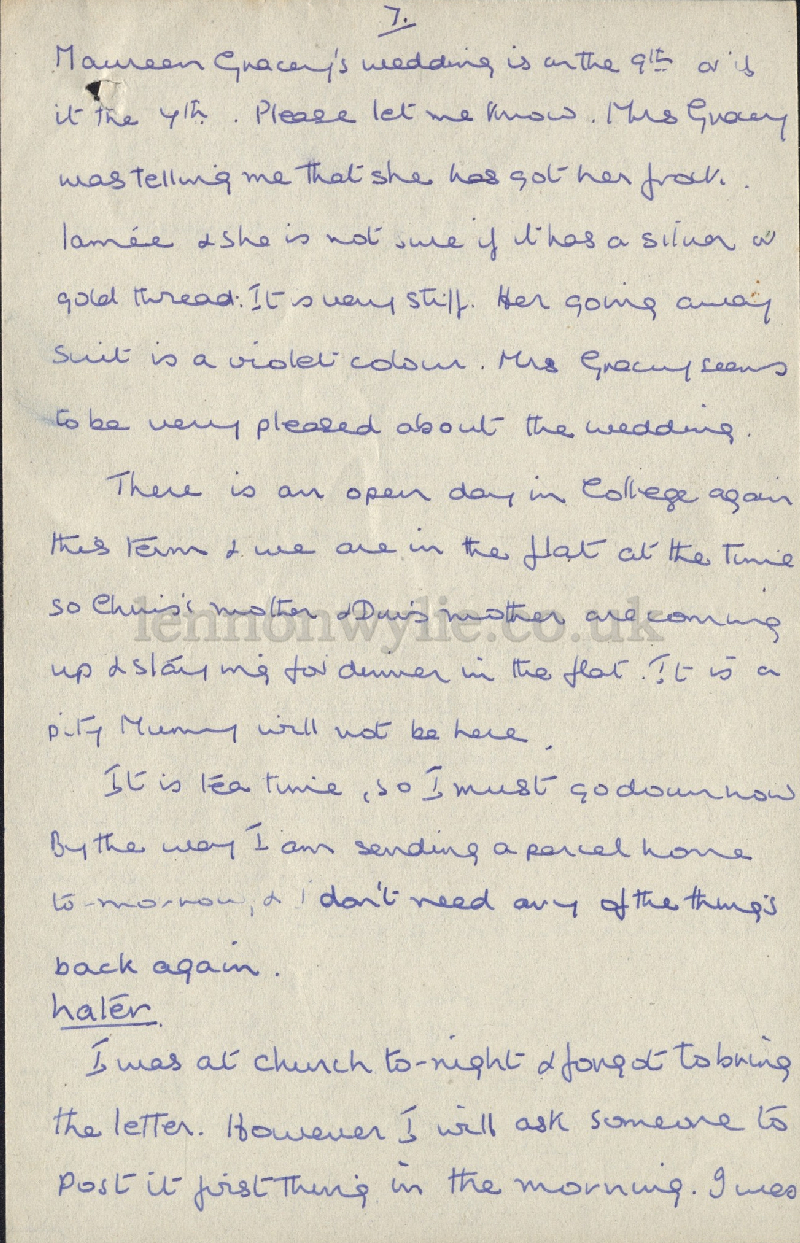 7.
Maureen Gracey's wedding is on the 9th or is
it the 4th. Please let me know. Mrs Gracey
was telling me that she has got her frock.
lamée & she is not sure if it has a silver or
gold thread. It is very stiff. Her going away
suit is a violet colour. Mrs Gracey seems
to be very pleased about the wedding.
There is an open day in College again
this term & we are in the flat at the time
so Chris's mother & mother are coming
up & staying for dinner in the flat. It is a
pity Mummy will not be here.
It is tea time, so I must go down now
By the way I am sending a parcel home
to-morrow, & I don't need any of the things
back again.
Later.
I was at church to-night & forgot to bring
the letter. However I will ask someone to
post it first thing in the morning. I was
lennonwylie.co.uk